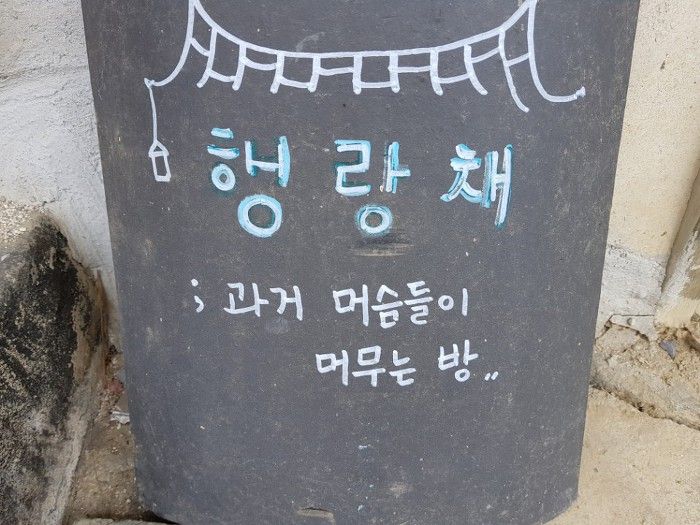 행랑채
; 과거 머슴들이
머무는 방..